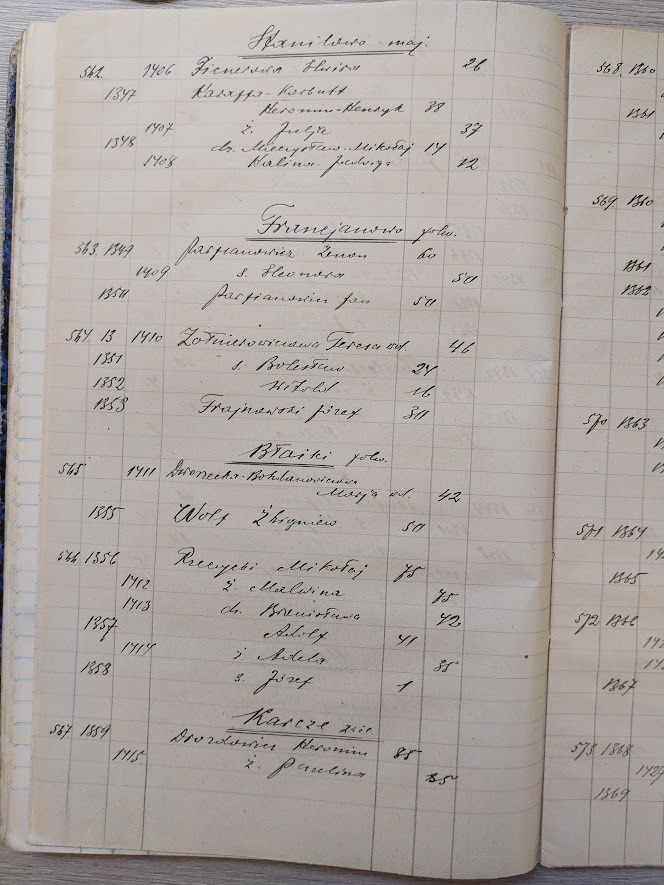 Stanilowo maj.
562. 1406 26
1347 Karaffa-Korbutt
Heronim-Henryk 38
1407 ż. Julja 37
1348 dz. Mieczysław-Mikołaj 14
1408 Kalina-Jadwiga 12
Francjanowo folw.
563. 1349 Parfianowicz Zenon 60
1409 s. Eleonora 50
1350 Parfianowicz Jan 50
564. 13 1410 Żołnierowiczowa Teresa wd. 46
1351 s. Bolesław 24
1352 Witold 16
1353 Józef 30
Błaiki folw.
565 1411 Dworzecka-Bohdanowiczowa
Marja wd. 42
1355 Wolf Zbigniew 50
566 1356 Rzeczycki Mikołaj 75
1412 ż. Malwina 75
1413 dz. Bronisława 42
1357 Adolf 41
1414 ż. Adela 35
1358 s. Józef 1
Karcze
567 1359 Drozdowicz Heronim 85
1415. ż. Paulina 35
568. 1360
1361
569. 1360
1361
1362
570 1363
571 1364
1365
572 1366
1367
573 1368
1369